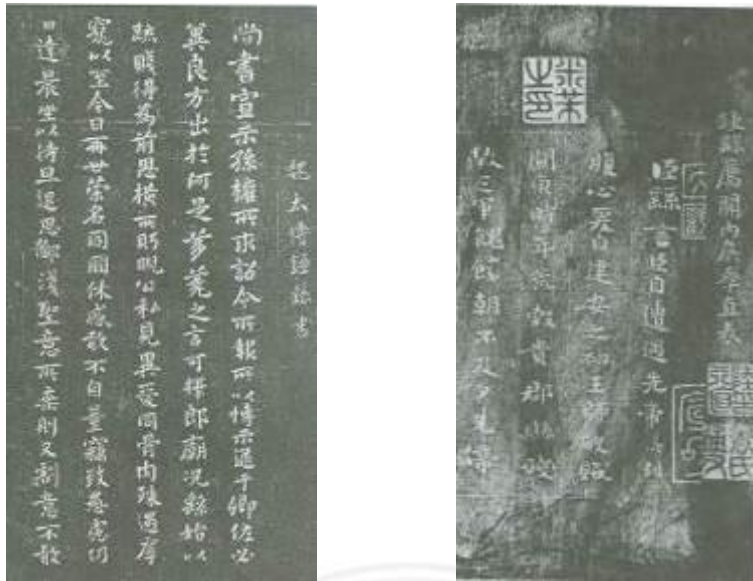 魏太傅鍾繇書
尚書宣示孫權所求詔令所報所以博示逮于卿佐必
冀良方出於阿是芻蕘之言可擇郎廟況繇始以
疏賤得為前恩橫所盱睨公私見異愛同骨肉殊遇厚
寵以至今日再世榮名同國休慼敢不自量竊致愚慮仍
日達晨坐以待旦退思鄙淺聖意所棄則又割意不敢
薦關內侯季直表
臣繇言臣自遭遇先帝忝列
腹心爰自建安之初王師破賊
關東時年荒穀貴郡縣殘
毀三軍餽饟朝不及夕先帝
米芾之印